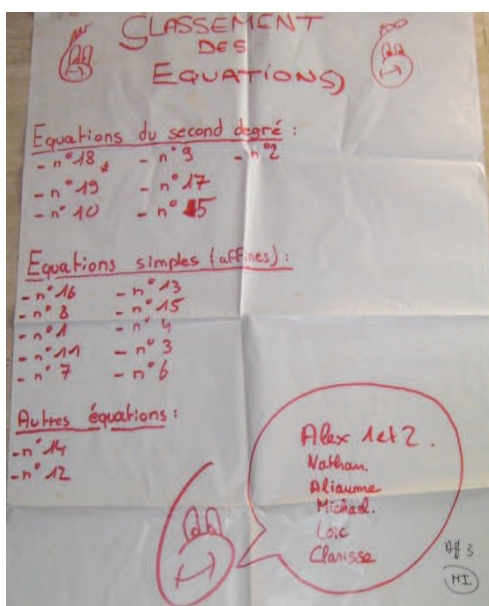 CLASSEMENT
DES
EQUATIONS
Equations du second degré :
- n°18 - n°9 - n°2
- n°19 - n°17
- n°10 - n°5
Equations simples (affines) :
- n°16 - n°13
- n°8 - n°15
- n°1 - n°4
- n°11 - n°3
- n°7 - n°6
Autres équations :
- n°14
- n°12
Alex 1 et 2.
Nathan
Aliaume
Michael.
Loïc
Clarisse
3
MI